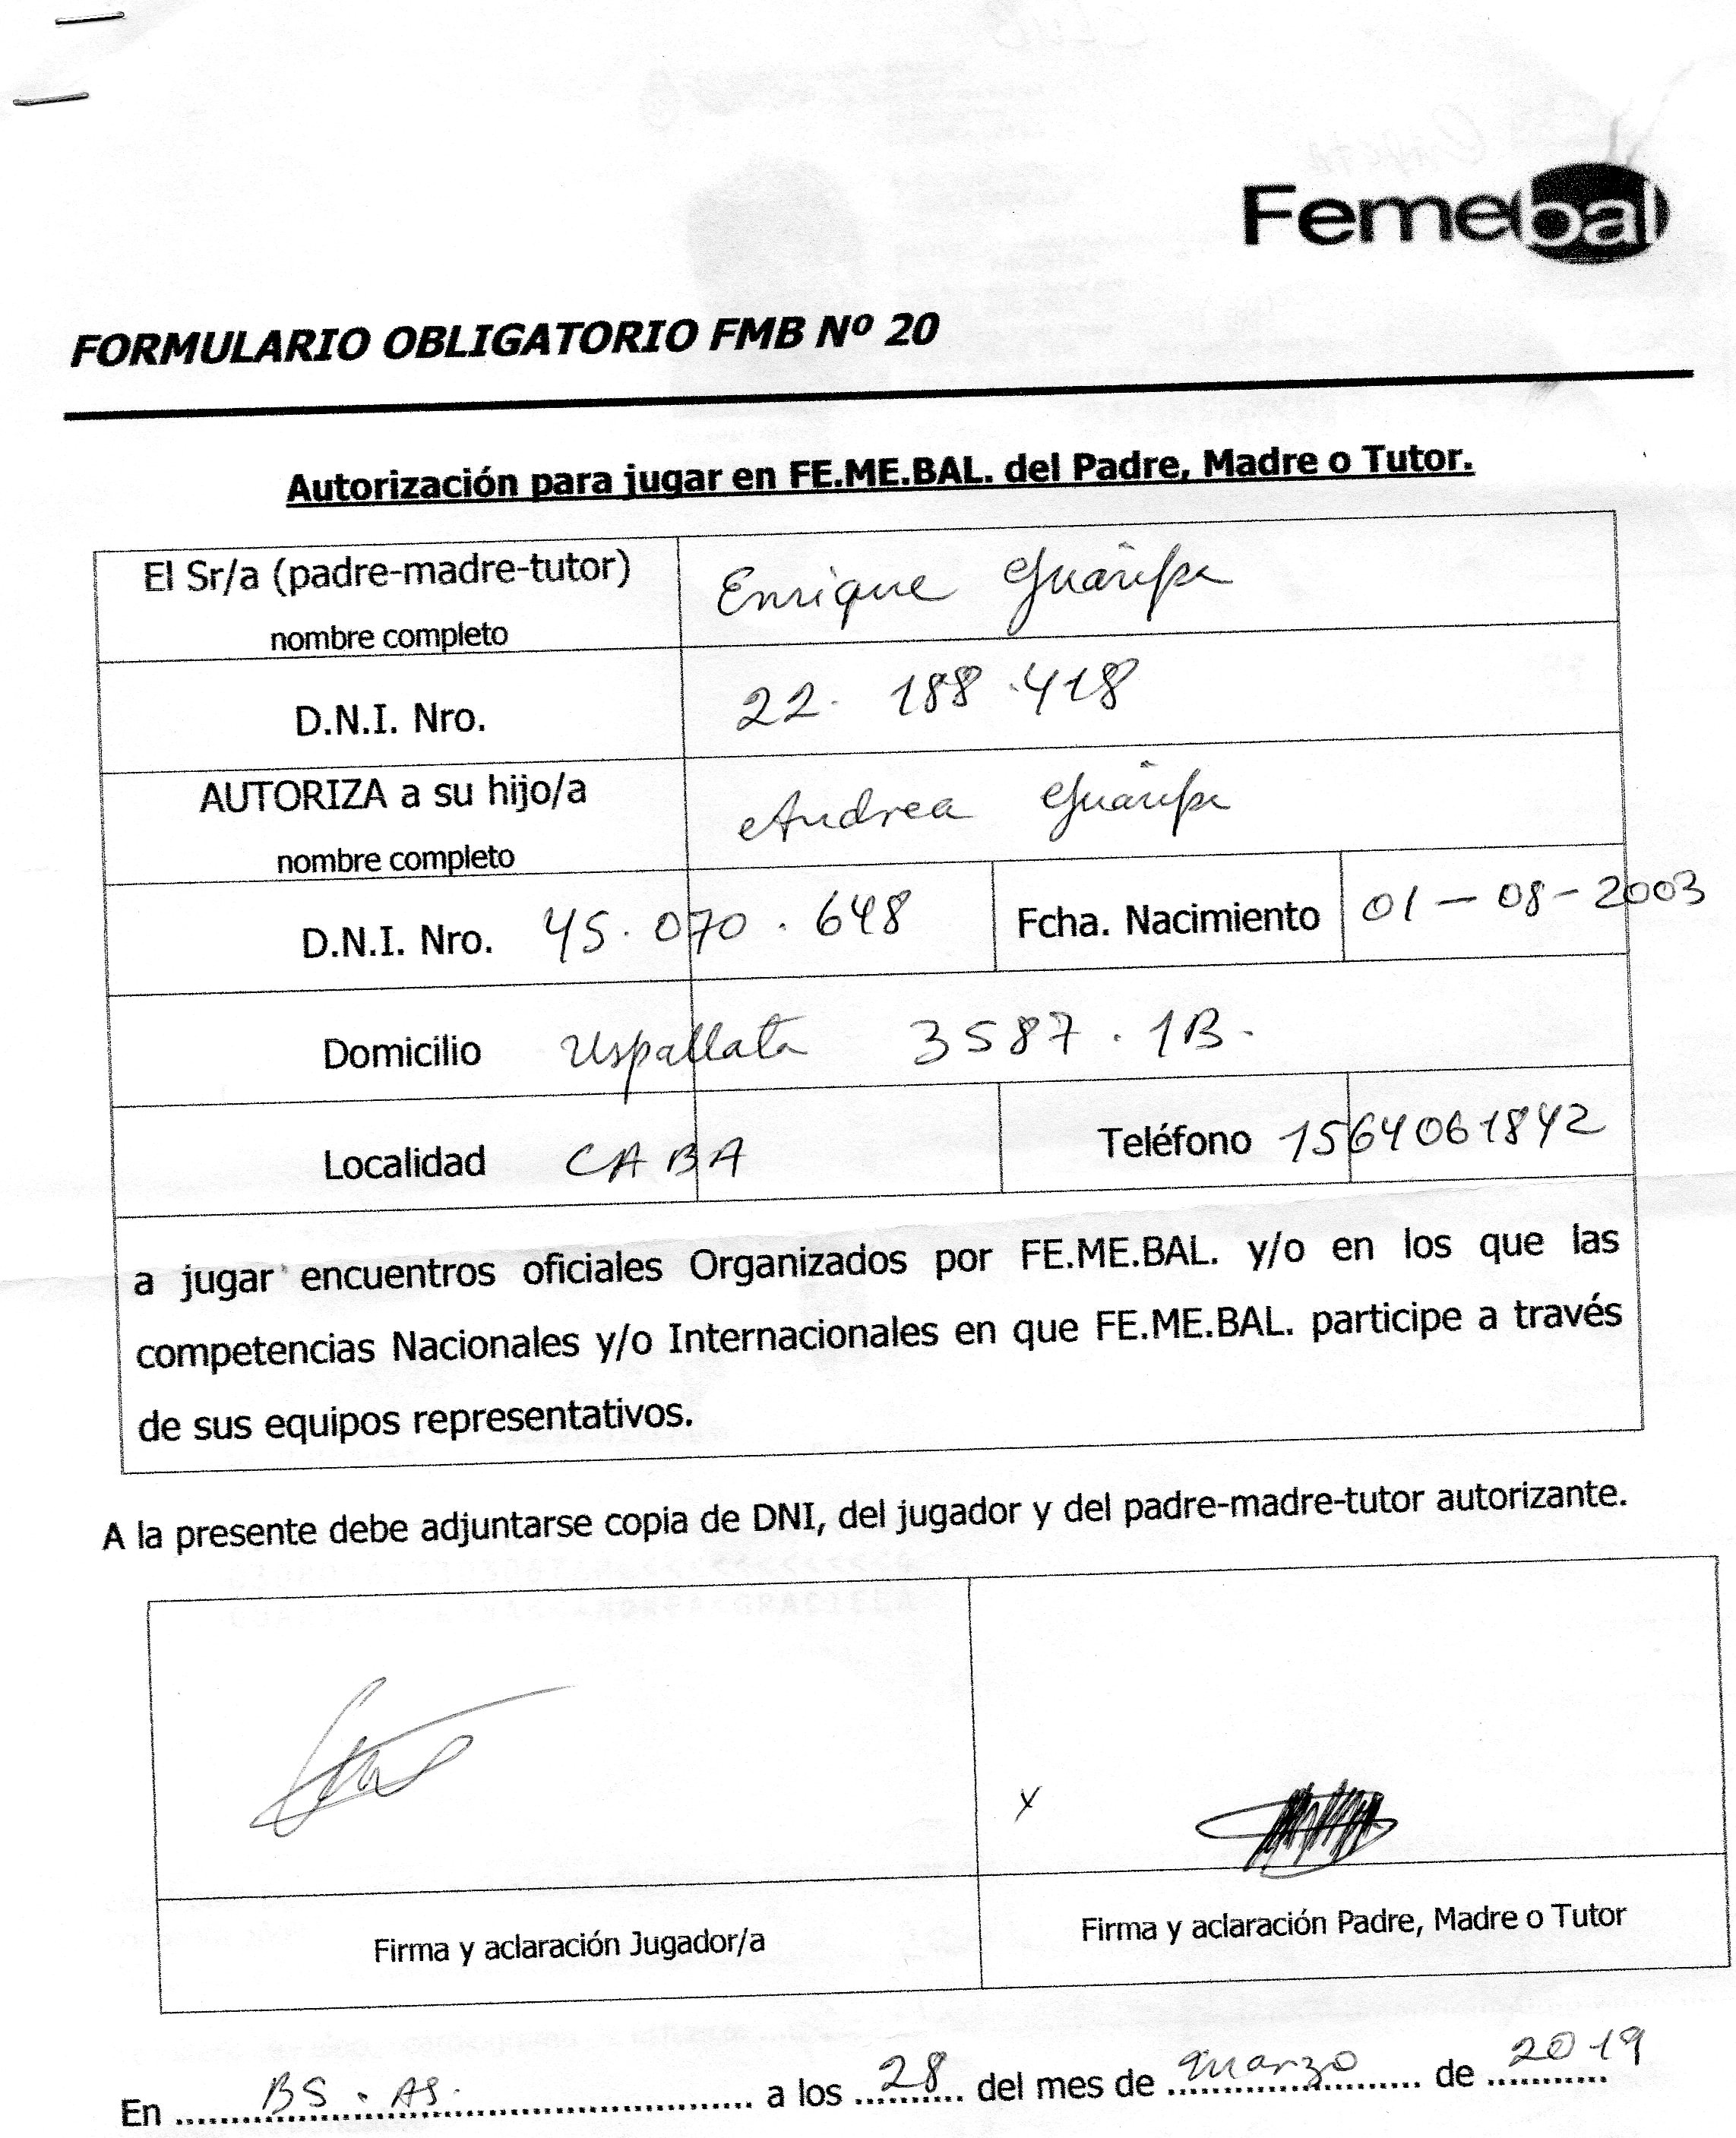 Femebal
FORMULARIO OBLIGATORIO FMB Nº 20
Autorización para jugar en FE.ME.BAL. del Padre, Madre o Tutor.
El Sr/a (padre-madre-tutor) Enrique
nombre completo
D.N.I. Nro. 22. 188.418
AUTORIZA a su hijo/a Andrea
nombre completo
D.N.I. Nro. 45.070.648 Fcha. Nacimiento 01-08-2003
Domicilio Uspallata 3587.1B.
Localidad CABA Teléfono 1564061842
a jugar encuentros oficiales Organizados por FE.ME.BAL. y/o en los que las
competencias Nacionales y/o Internacionales en que FE.ME.BAL. participe a través
de sus equipos representativos.
A la presente debe adjuntarse copia de DNI, del jugador y del padre-madre-tutor autorizante.
x
Firma y aclaración Jugador/a Firma y aclaración Padre, Madre o Tutor
En BS.AS. a los 28 del mes de marzo de 2019